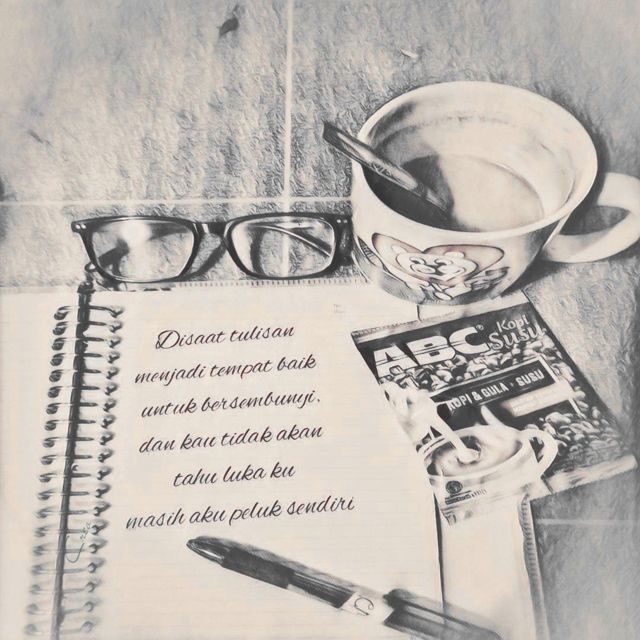 Disaat tulisan
menjadi tempat baik
untuk bersembunyi.
dan kau tidak akan
tahu luka ku
masih aku peluk sendiri
ABC
Kopi
Susu
KOPI & GULA + SUSU